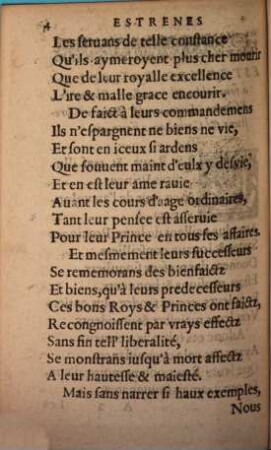 4 ESTRENES
Les seruans de telle constance
Qu'ils aymeroyent plus cher mourir
Que de leur royalle excellence
L'ire & malle grace encourir.
De faict à leurs commandemens
Ils n'espargnent ne biens ne vie,
Et sont en iceux si ardens
Que souuent maint d'eulx y desvie,
Et en est leur ame rauie
Auant les cours d'aage ordinaires,
Tant leur pensee est asseruie
Pour leur Prince en tous ses affaires.
Et mesmement leurs successeurs
Se rememorans des bienfaictz
Et biens, qu'à leurs predecesseurs
Ces bons Roys & Princes ont faictz,
Recongnoissent par vrays effectz
Sans fin tell' liberalité,
Se monstrans iusqu'à mort affectz
A leur hautesse & maiesté.
Mais sans narrer si haux exemples,
Nous